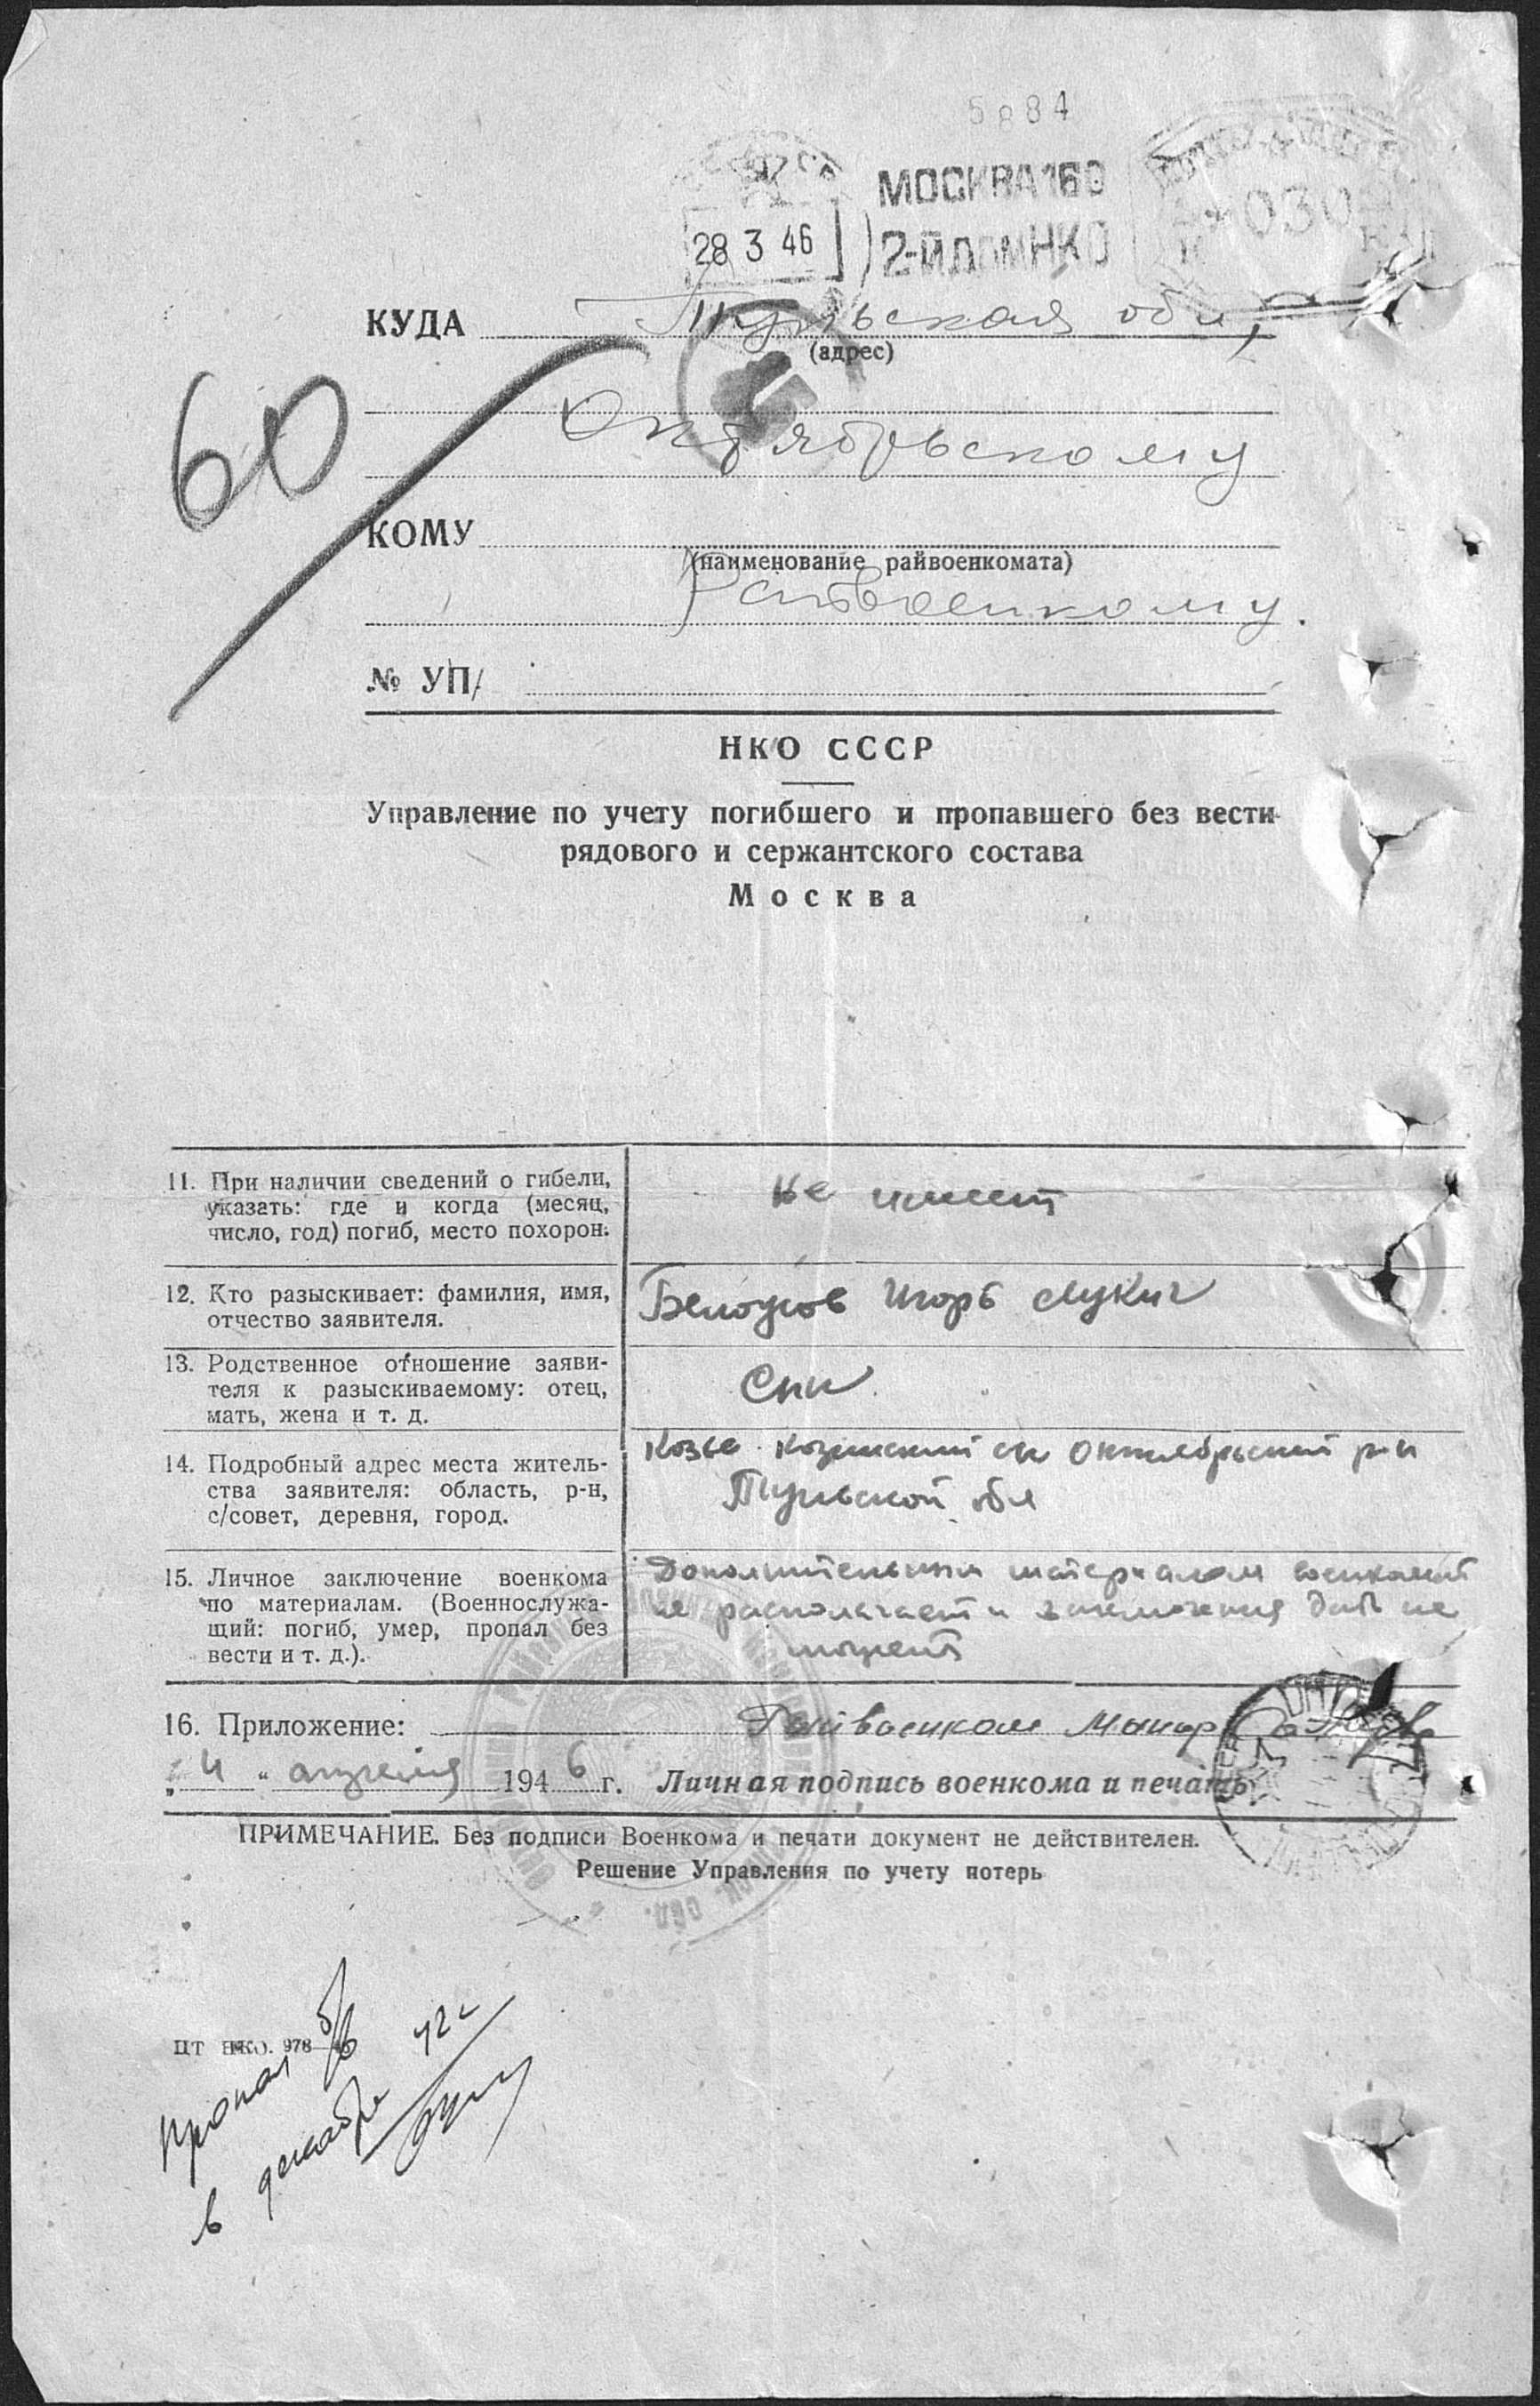 5884
28 3 46
МОСКВА 160
2-Й ДОМ НКО
030
КУДА Тульская обл,
(адрес)
60
Октябрьскому
КОМУ
(наименование райвоенкомата)
Райвоенкому.
№ УП/
НКО СССР
Управление по учету погибшего и пропавшего без вести
рядового и сержантского состава
Москва
11. При наличии сведений о гибели,
указать: где и когда (месяц,
число, год) погиб, место похорон.
не имеет
12. Кто разыскивает: фамилия, имя,
отчество заявителя.
Белоусов Игорь Лукич
13. Родственное отношение заяви-
теля к разыскиваемому: отец,
мать, жена и т. д.
Сын
14. Подробный адрес места житель-
ства заявителя: область, р-н,
с/совет, деревня, город.
Октябрьский р-н
Тульской обл
15. Личное заключение военкома
по материалам. (Военнослужа-
щий: погиб, умер, пропал без
вести и т. д.).
Дополнительным материалом военкомат
не располагает и заключения дать не
может
16. Приложение:
Райвоенком Майор
„4“ апреля 1946 г. Личная подпись военкома и печать
ПРИМЕЧАНИЕ. Без подписи Военкома и печати документ не действителен.
Решение Управления по учету потерь
ЦТ НКО. 978
Пропал б/в
в декабре 42 г